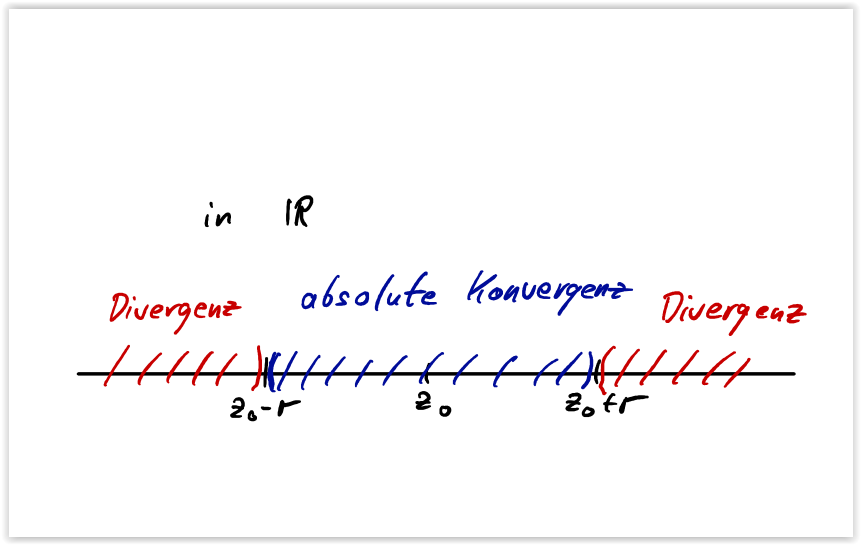 in ℝ
Divergenz absolute Konvergenz Divergenz
z₀-r z₀ z₀+r